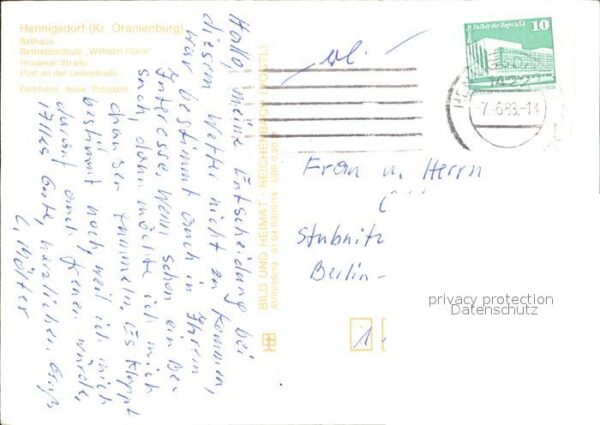 Hennigsdorf (Kr. Oranienburg)
Rathaus
Betriebsschule „Wilhelm Florin"
Straße
Post an der Leninstraße
Farbfotos: Potsdam
Hallo, meine Entscheidung bei
diesem Wetter nicht zu kommen,
war bestimmt auch in Ihrem
Interesse. Wenn schon ein Be-
such, dann möchte ich mich
draußen tummeln. Es klappt
bestimmt noch, weil ich mich
darauf auch freuen würde.
Alles Gute, herzlichen Gruß
BILD UND HEIMAT · REICHENBACH (VOGTL)
Berlin, Palast der Republik
10
DDR
-7.-6.83.-14
Frau u. Herrn
Stubnitz
Berlin-
1
privacy protection
Datenschutz